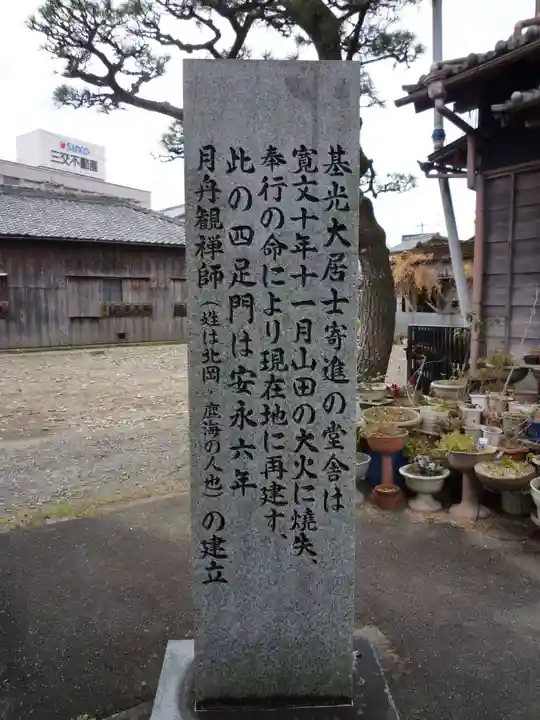 基光大居士寄進の堂舎は
寛文十年十一月山田の大火に焼失、
奉行の命により現在地に再建す、
此の四足門は安永六年
月舟観禅師（姓は北岡・鹿海の人也）の建立
SANCO
三交不動産